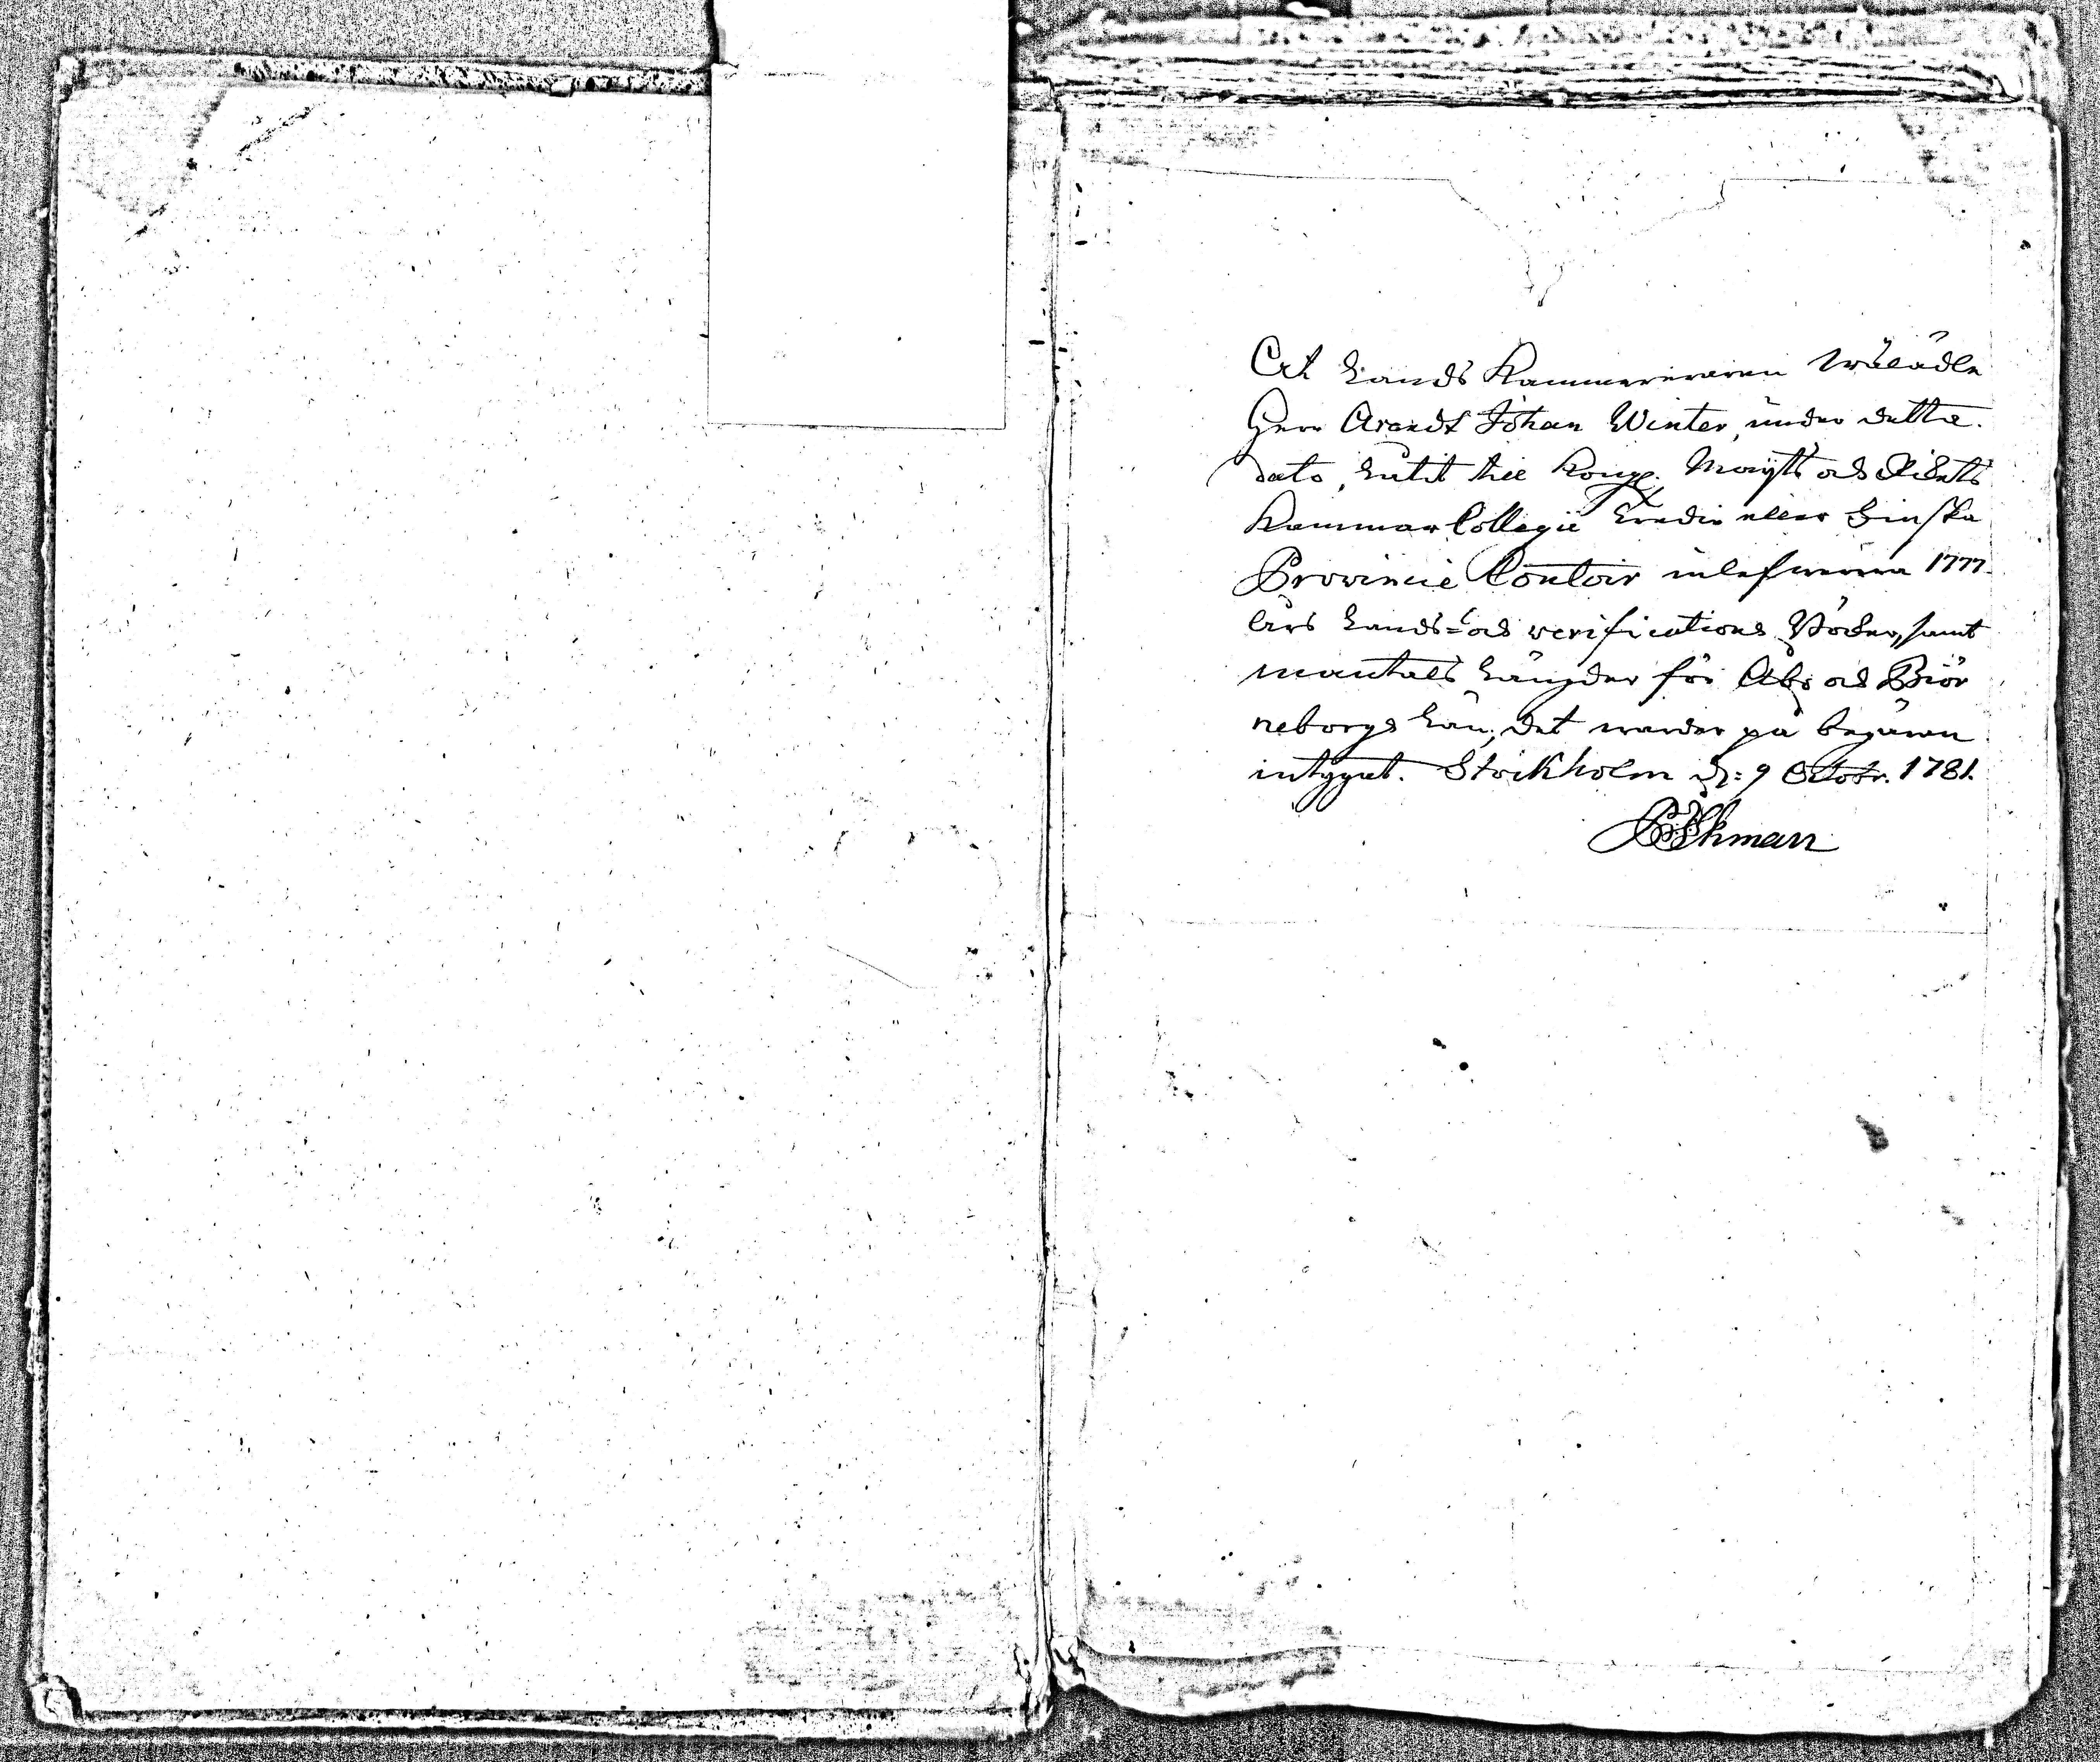 At Lands Kammereraren Wälädle
Herr Arendt Johan Winter, under detta
dato, låtit till Kongl. Maijts och Rikets
Kammar Collegii Tredie eller Finska
Provincie Contoir inlefwerera 1777
års Lands= och verifications Böcker, samt
mantals Längder för Åbo och Biör
neborgs Län, det warder på begäran
intygat. Stockholm d: 9 Octobr. 1781.
Ekman